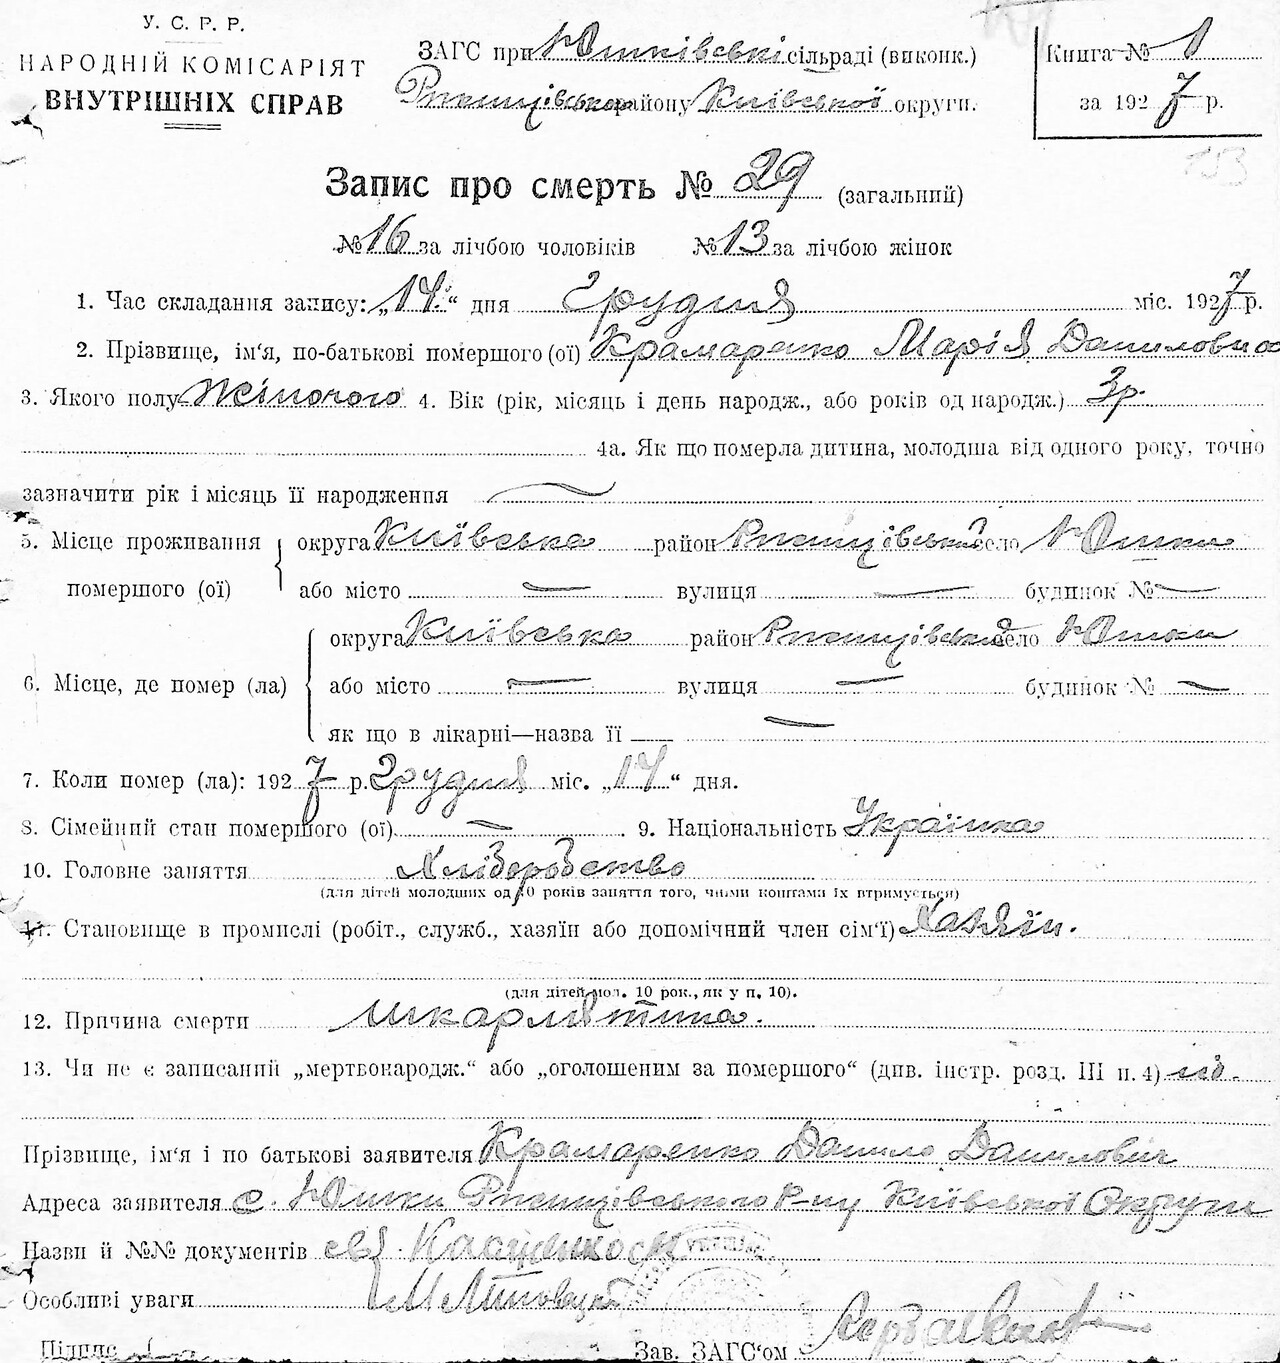 У. С. Р. Р.
НАРОДНІЙ КОМІСАРІЯТ
ВНУТРІШНІХ СПРАВ
ЗАГС при Юшківській сільраді (виконк.)
Ржищівського району Київської округи.
Книга № 1
за 1927 р.
153
Запис про смерть № 29 (загальний)
№ 16 за лічбою чоловіків № 13 за лічбою жінок
1. Час складання запису: „14.“ дня Грудня міс. 1927 р.
2. Прізвище, ім'я, по-батькові помершого (ої) Крамаренко Марія Даниловна
3. Якого полу Жіночого 4. Вік (рік, місяць і день народж., або років од народж.) 3 р.
4а. Як що померла дитина, молодша від одного року, точно
зазначити рік і місяць її народження —
5. Місце проживання помершого (ої) округа Київська район Ржищівський село Юшки
або місто — вулиця — будинок № —
6. Місце, де помер (ла) округа Київська район Ржищівський село Юшки
або місто — вулиця — будинок № —
як що в лікарні—назва її —
7. Коли помер (ла): 1927 р. Грудня міс. „14“ дня.
8. Сімейний стан помершого (ої) — 9. Національність Українка
10. Головне заняття Хліборобство
(для дітей молодших од 10 років заняття того, чиїми коштами їх втримується)
11. Становище в промислі (робіт., служб., хазяїн або допомічний член сім'ї) Хазяїн.
(для дітей мол. 10 рок., як у п. 10).
12. Причина смерти шкарлятина.
13. Чи не є записаний „мертвонародж.“ або „оголошеним за помершого“ (див. інстр. розд. III п. 4) ні.
Прізвище, ім'я і по батькові заявителя Крамаренко Данило Данилович
Адреса заявителя с. Юшки Ржищівського р-ну Київської Округи
Назви й №№ документів
Особливі уваги
Підпис
Зав. ЗАГС'ом